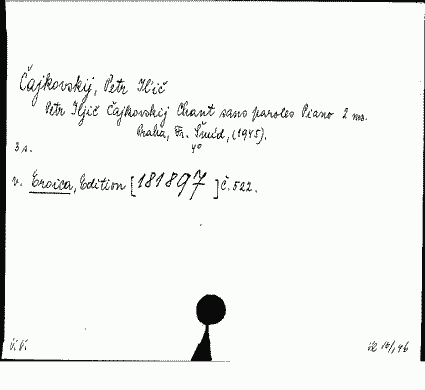 Čajkovskij, Petr Iljič
Petr Iljič Čajkovskij Chant sans paroles Piano 2 ms.
Praha, Fr. Šmíd, (1945).
4°
3 s.
v. Eroica, Edition [181897] č. 522.
V.V.